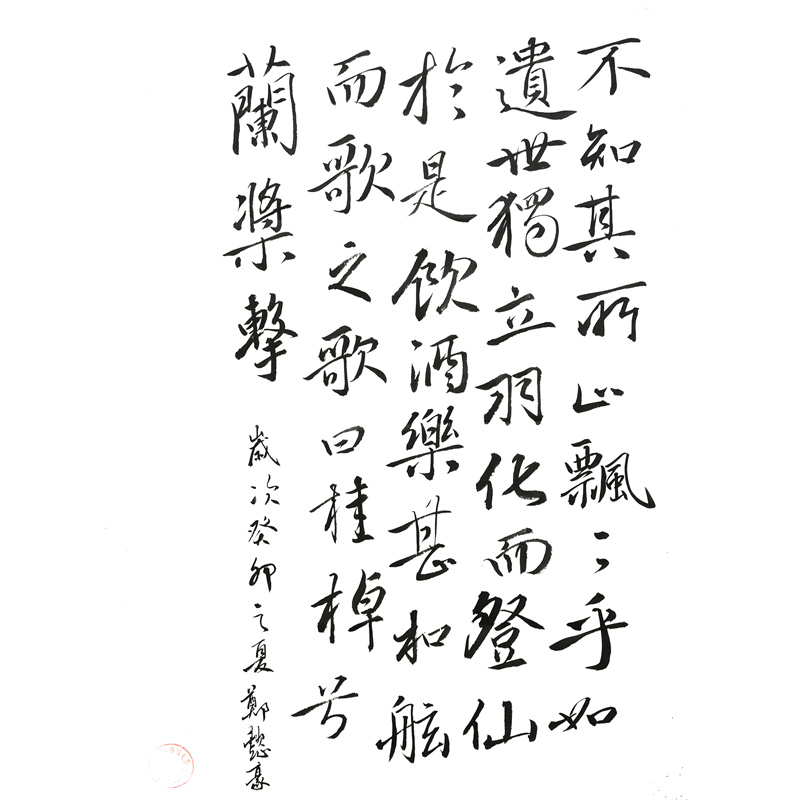 不知其所止飄〻乎如
遺世獨立羽化而登仙
於是飲酒樂甚扣舷
而歌之歌曰桂棹兮
蘭槳擊
歲次癸卯之夏鄭懿豪